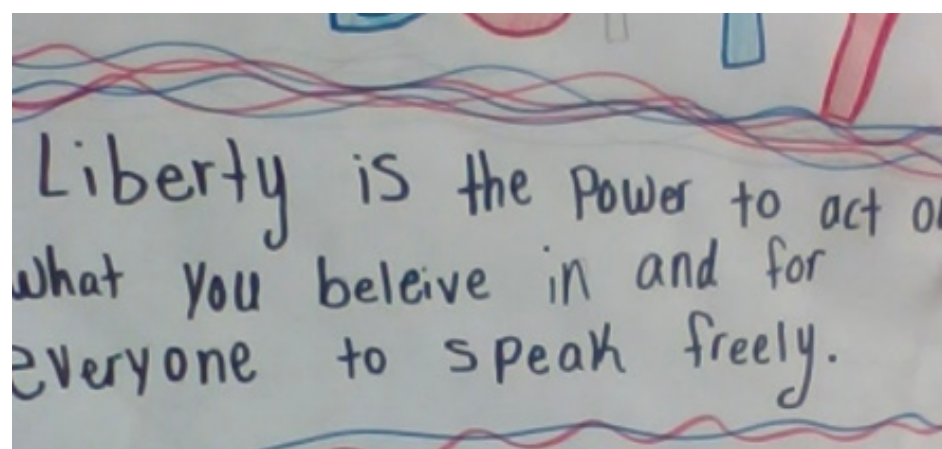 Liberty is the Power to act
what you beleive in and for
everyone to speak freely.